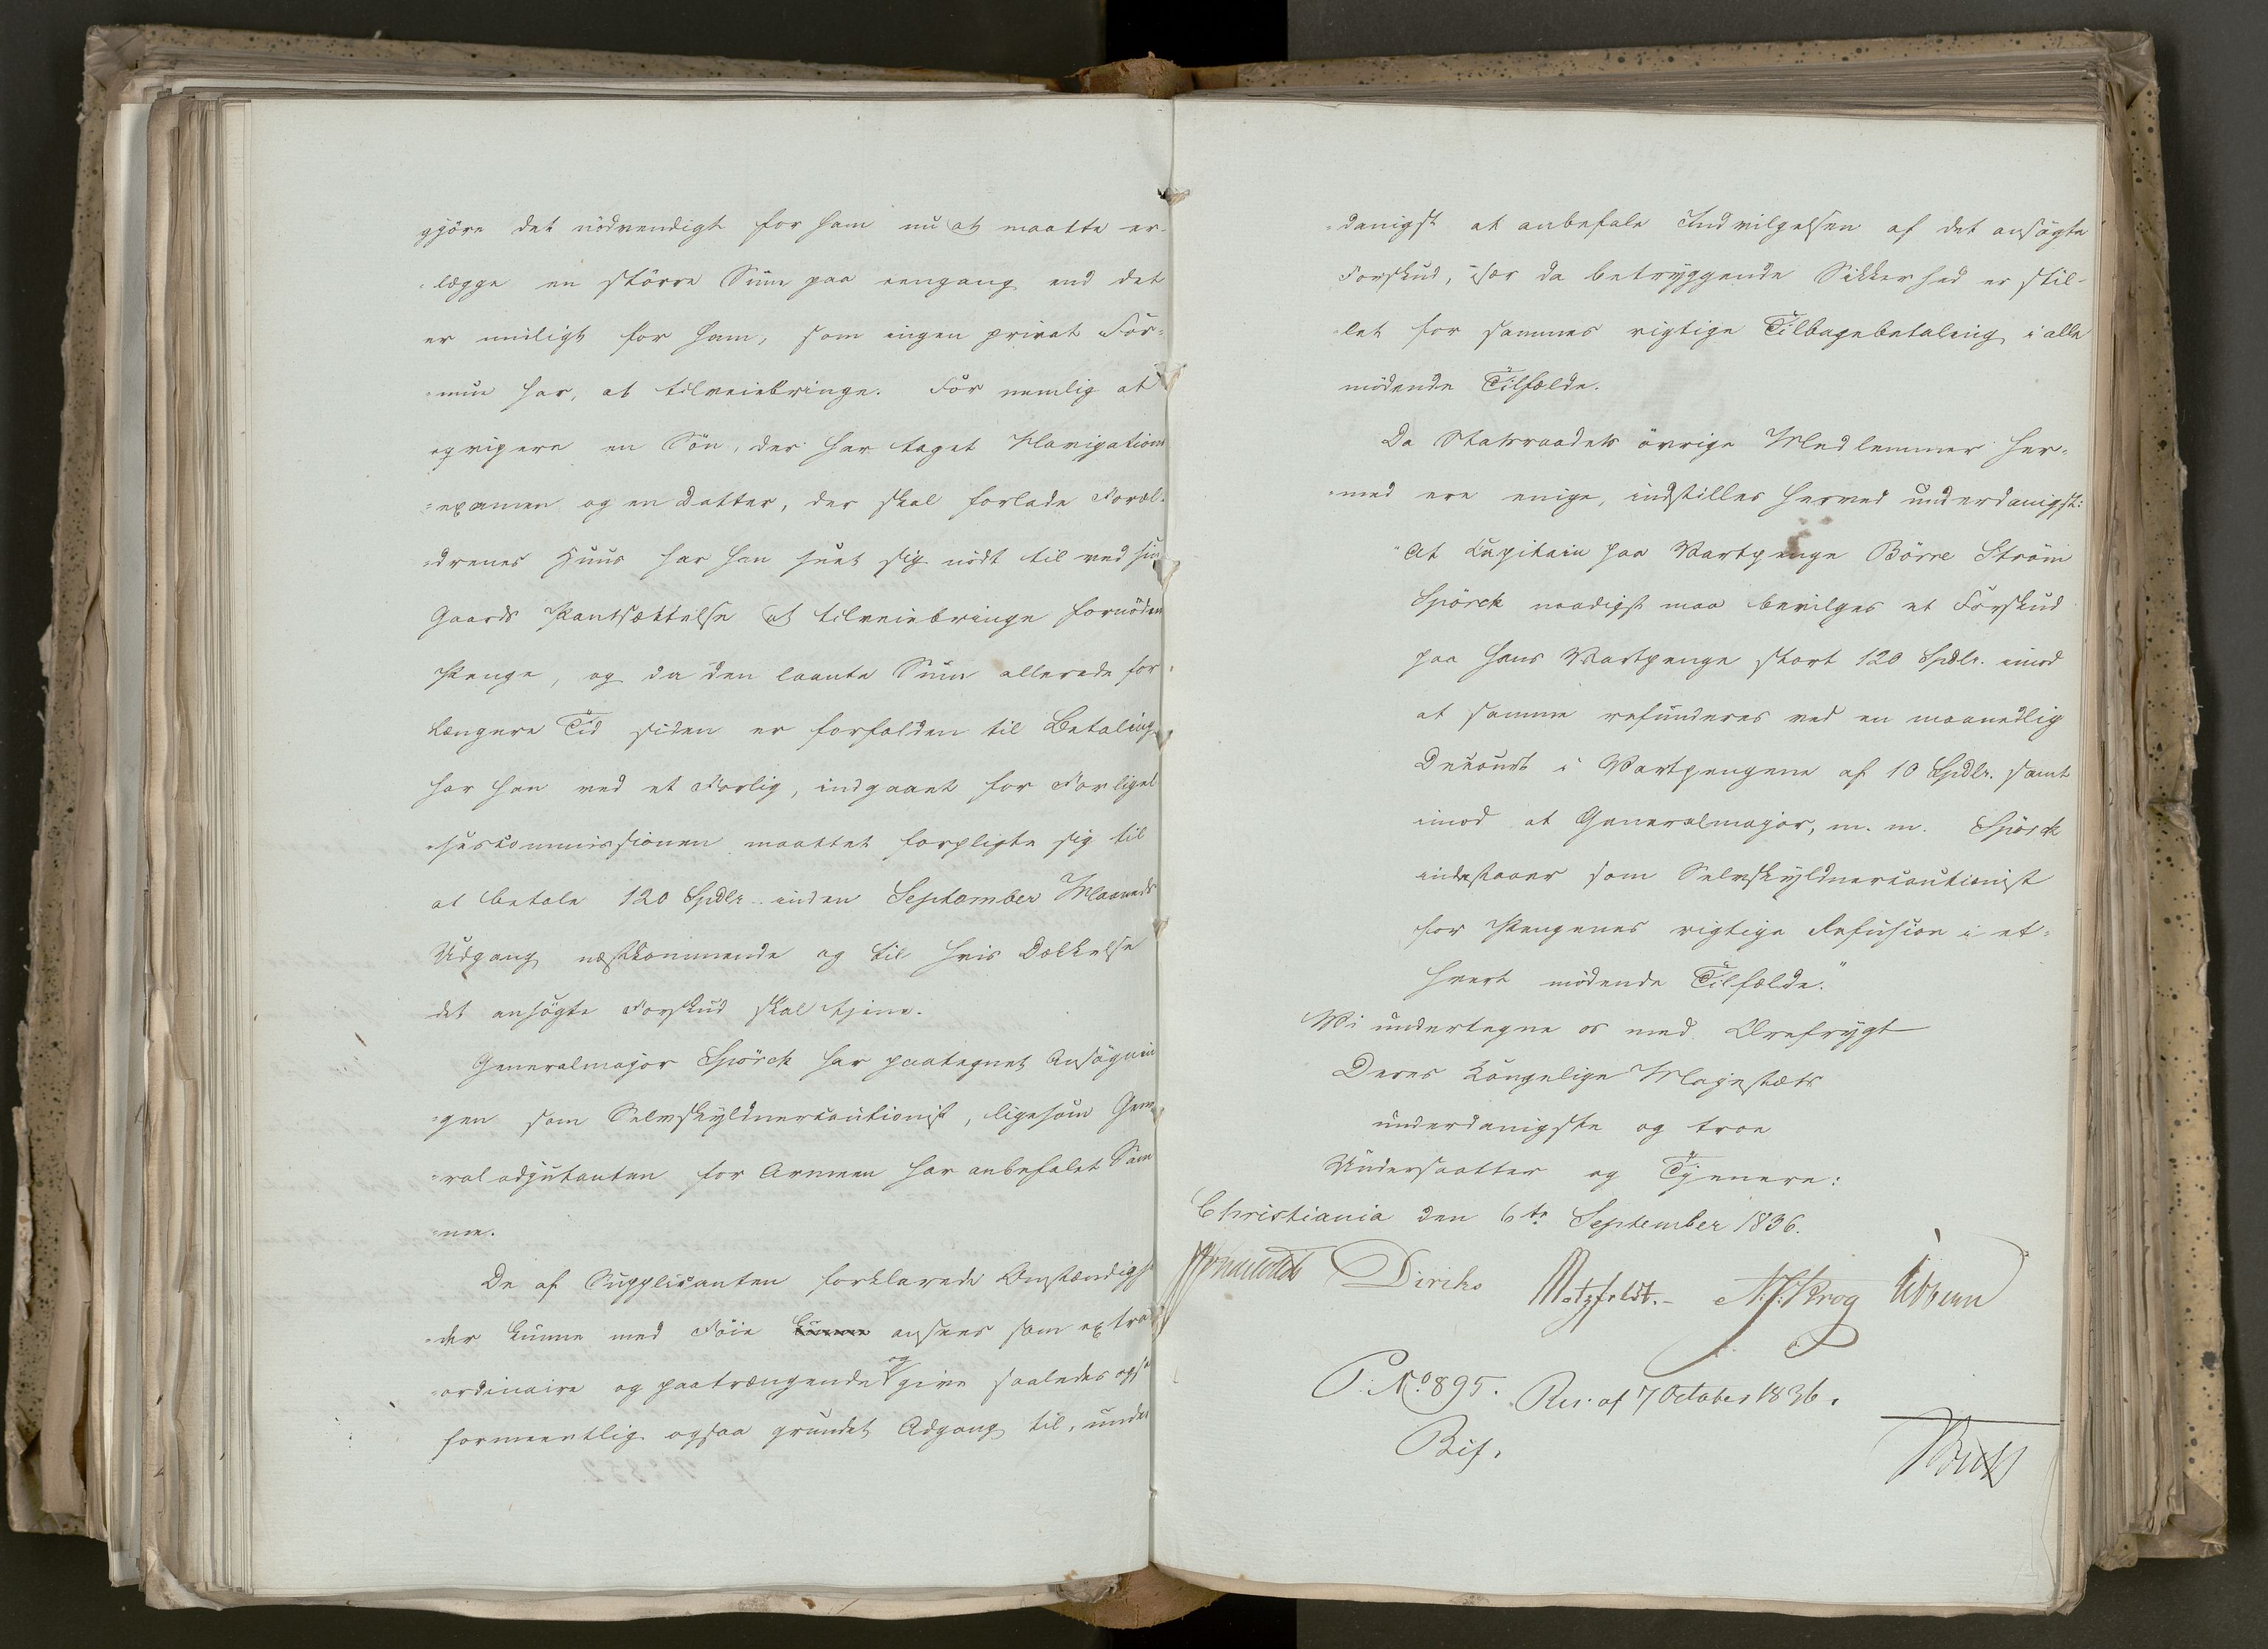 gjöre det nödvendigt for ham nu at maatte er-
-lægge en större Sum paa eengang end det
er muligt for ham, som ingen privat For-
-mue har, at tilveiebringe. For nemlig at
eqvipere en Sön, der har taget Navigations
-examen og en Datter, der skal forlade Foræl-
-drenes Huus har han seet sig nödt til ved sin
Gaards Pantsættelse at tilveiebringe fornöden
Penge, og da den laante Sum allerede for
længere Tid siden er forfalden til Betaling
har han ved et Forlig, indgaaet for Forligel
-sescommissionen maattet forpligte sig til
at betale 120 Spdlr. inden September Maaneds
Udgang næstkommende og til hvis Dækkelse
det ansögte Forskud skal tjene.
Generalmajor Spörck har paategnet Ansögnin
-gen som Selvskyldnercautionist, ligesom Gene
-raladjutanten for Armeen har anbefalet Sam
-me.
De af Supplicanten forklarede Omstændighe
-der kunne med Föie kunne ansees som extra
-ordinaire og paatrængende og give saaledes ogsaa
formeentlig ogsaa grundet Adgang til, under
-danigst at anbefale Indvilgelsen af det ansögte
Forskud, især da betryggende Sikkerhed er stil-
-let for sammes rigtige Tilbagebetaling i alle
mödende Tilfælde.
Da Statsraadets övrige Medlemmer her-
-med ere enige, indstilles herved underdanigst:
"At Capitain paa Vartpenge Börre Ström
Spörck naadigst maa bevilges et Forskud
paa hans Vartpenge stort 120 Spdlr. imod
at samme refunderes ved en maanedlig
Decourt i Vartpengene af 10 Spdlr. samt
imod at Generalmajor, m. m. Spörck
indestaaer som Selvskyldnercautionist
for Pengenes rigtige Refusion i et-
hvert mödende Tilfælde."
Vi undertegne os med Ærefrygt
Deres Kongelige Majestæts
underdanigste og troe
Undersaatter og Tjenere:
Christiania den 6te September 1836.
Diriks Motzfeldt.- N. J. Krog
P. No 895. Res. af 7 October 1836.
Bif.